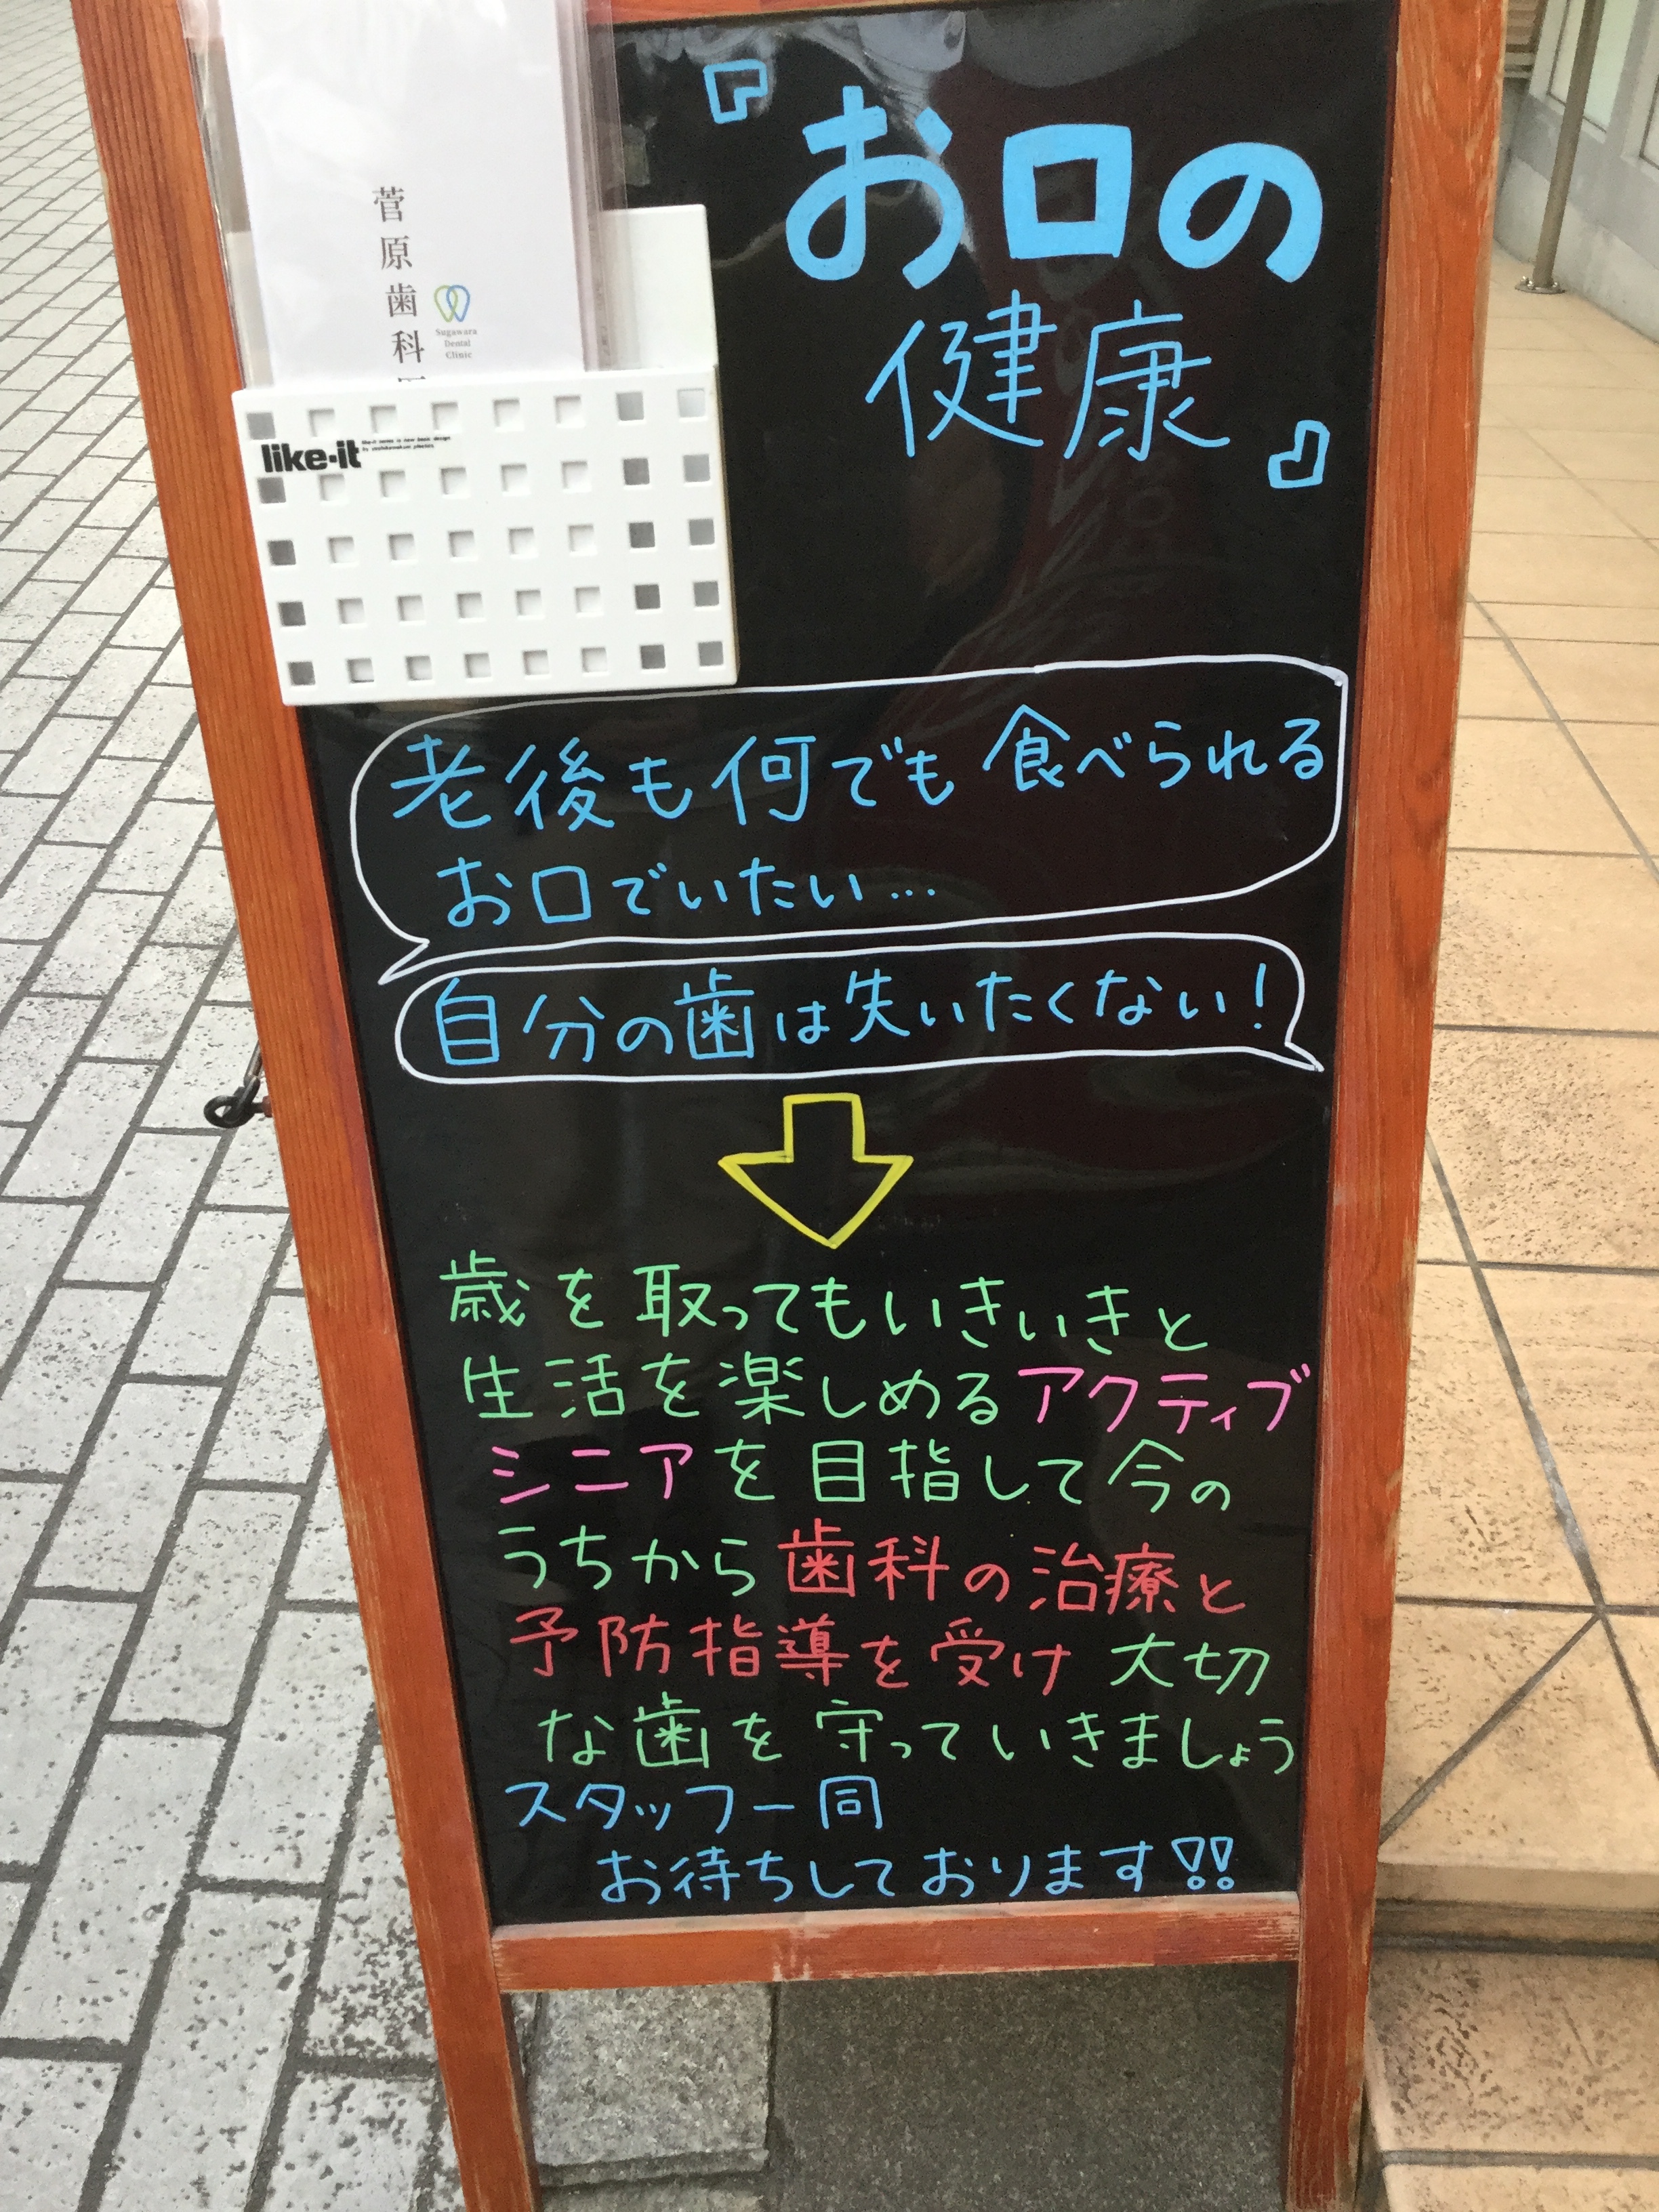 『お口の
健康』
菅原歯科
Sugawara
Dental
Clinic
like-it
老後も何でも食べられる
お口でいたい…
自分の歯は失いたくない！
歳を取ってもいきいきと
生活を楽しめるアクティブ
シニアを目指して今の
うちから歯科の治療と
予防指導を受け大切
な歯を守っていきましょう
スタッフ一同
お待ちしております!!